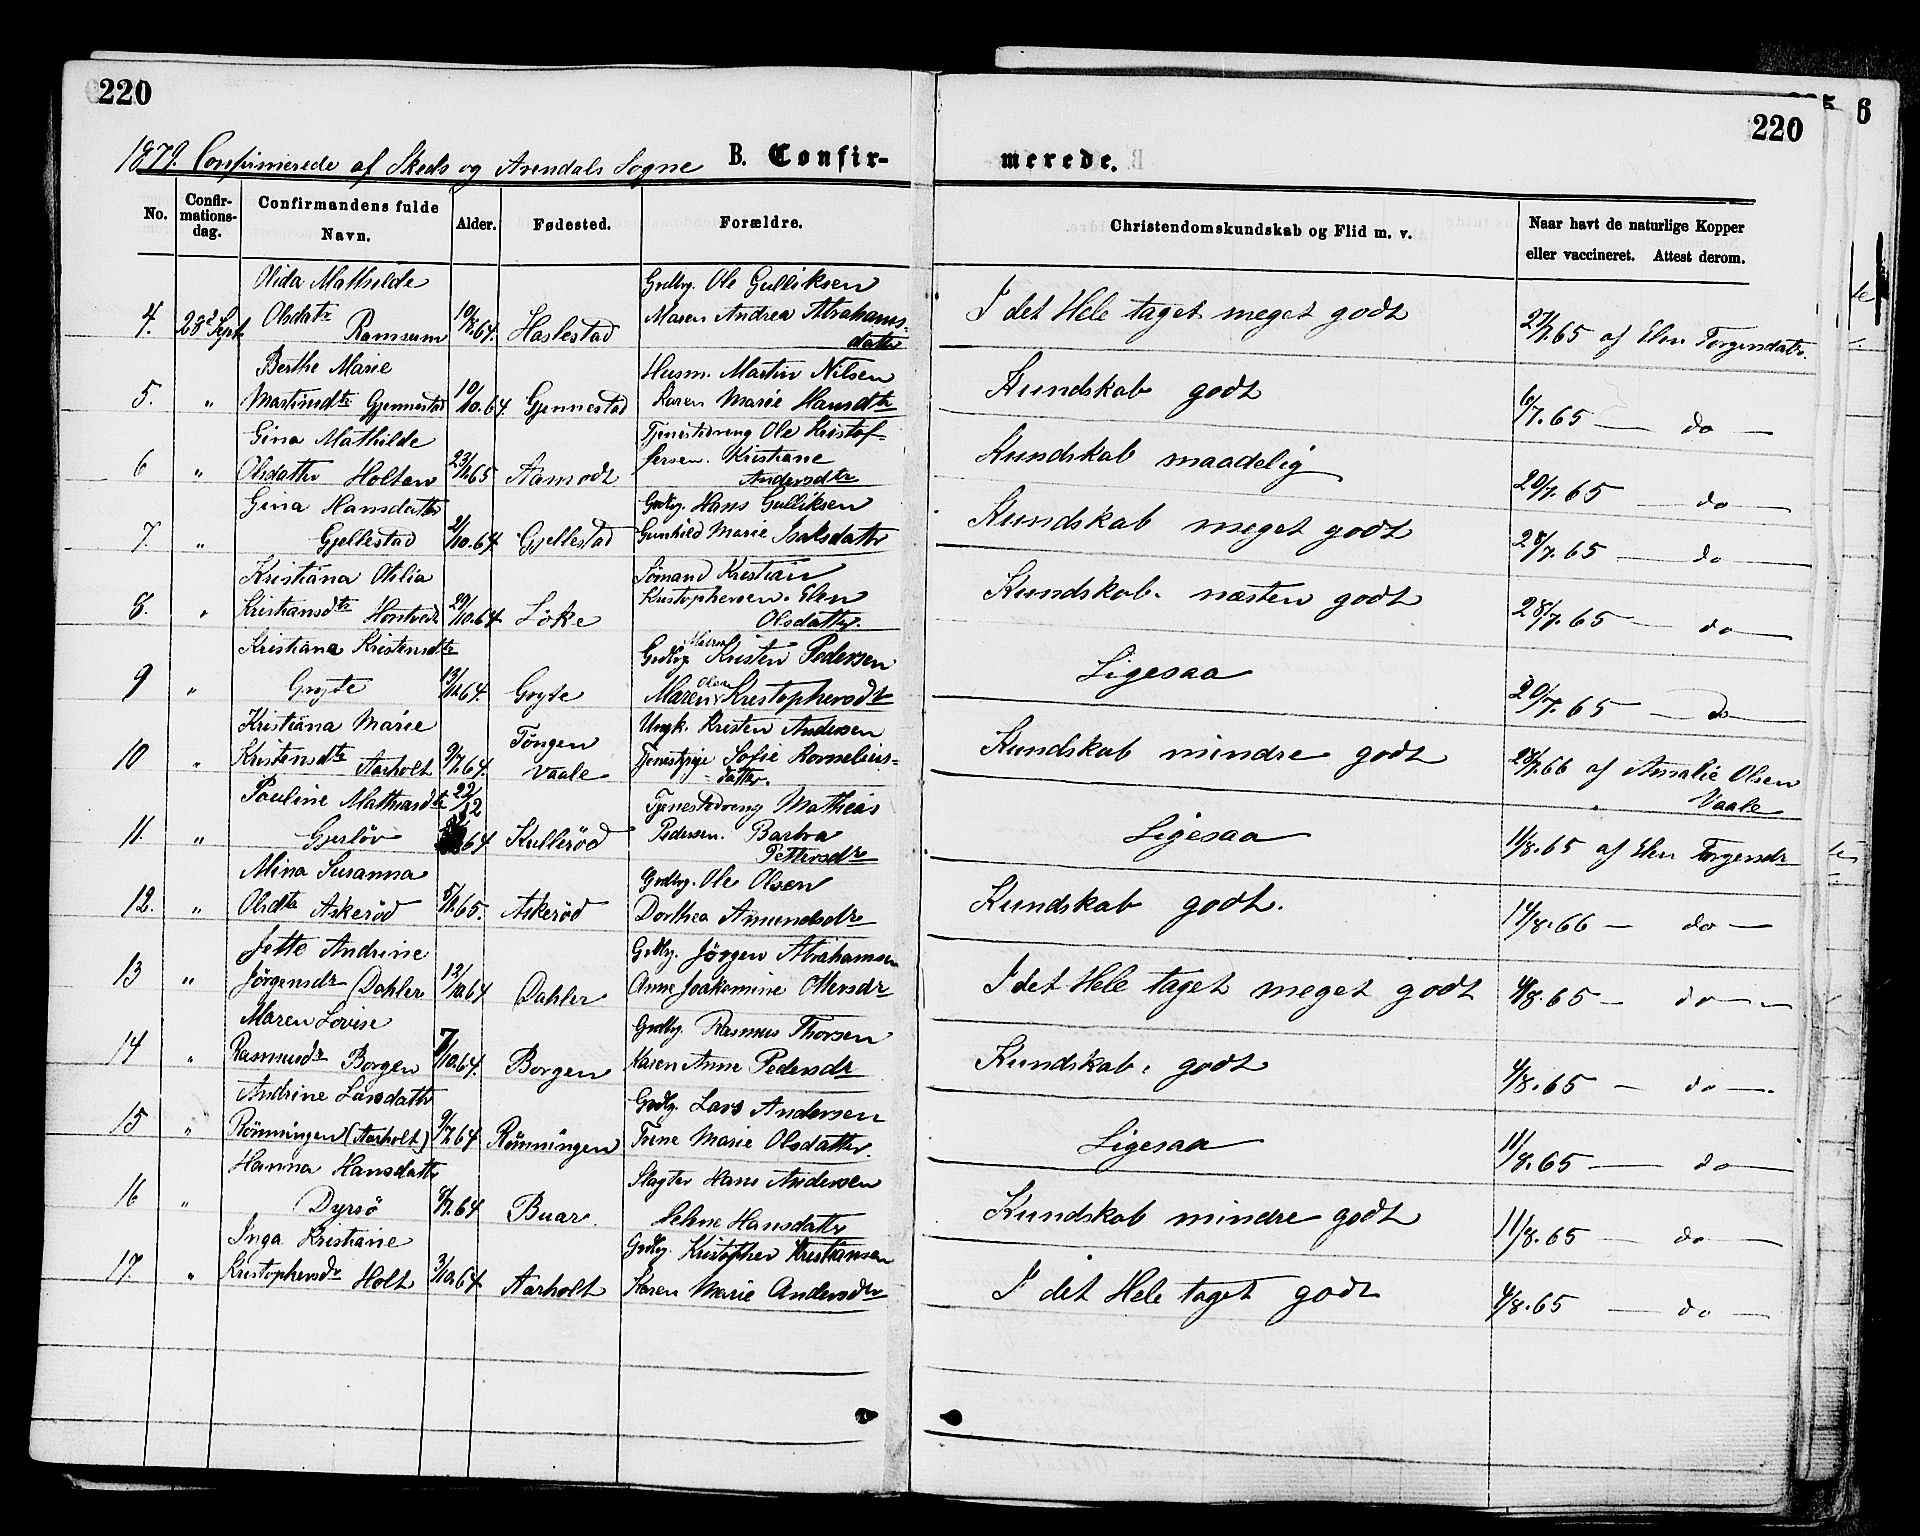 220
220
6
1879. Confirmerede af Skeds og Arendals Sogne B. Confir-
merede.
No.
Confir-
mations-
dag.
Confirmandens fulde
Navn.
Alder.
Fødested.
Forældre.
Christendomskundskab og Flid m. v.
Naar havt de naturlige Kopper
eller vaccineret. Attest derom.
Olida Mathilde
4. 28de Sept Olsdatr Ramsum 10/8.64. Haslestad
Grdbg. Ole Gulliksen
Maren Andrea Abrahams-
datter
I det Hele taget meget godt
27/7.65 af Elen Torgensdatr.
Berthe Marie
5. " Martinsdtr Gjennestad 10/10.64 Gjennestad
Husm. Martin Nilsen
Karen Marie Hansdtr
Kundskab godt
6/7.65 — do —
Gina Mathilde
6 " Olsdatter Holtan 23/1.65 Aamodt
Tjenestedreng Ole Kristof-
fersen. Kristiane
Andersdtr
Kundskab maadelig
20/7.65 — do —
Gina Hansdattr
7. " Gjellestad 2/10.64 Gjellestad
Grdbg. Hans Gulliksen
Gunhild Marie Isaksdattr
Kundskab meget godt
28/7.65 — do —
Kristiana Otilia
8. " Kristiansdtr Hontvedt 29/10.64 Löke
Sömand Kristian
Kristophersen. Elen
Olsdattr.
Kundskab. næsten godt
28/7.65 — do —
Kristiane Kristensdtr
9 " Gryte 13/12.64. Gryte
Grdbg. Kristen Pedersen
Maren Oline Kristophersdtr
Ligesaa
20/7.65 — do —
Kristiana Marie
10 " Kristensdtr Aarholt 9/7.64. Töngen
Vaale
Ungk. Kristen Andersen
Tjenestpige Sofie Kornelius-
datter.
Kundskab mindre godt
28/7.66 af Amalie Olsen
" Vaale
Pauline Mathiasdtr 22/12
11. " Gjerlöv 64 Kulleröd
Tjenestedreng Mathias
Pedersen. Barbra
Pettersdr
Ligesaa
11/8.65 af Elen Torgensdr
Mina Susanna
12. " Olsdtr Askeröd 5/1.65. Askeröd
Grdbg. Ole Olsen
Dorthea Amundsdr
Kundskab godt.
14/8.66 — do —
Jette Andrine
13 " Jörgensdr Dahler 13/10.64 Dahler
Grdbg. Jörgen Abrahamsen
Anne Joakomine Ottersdr
I det Hele taget meget godt
4/8.65 — do —
Maren Lovise
14 " Rasmusdr Borgen 7/10.64. Borgen
Grdbg. Rasmus Thorsen
Karen Anne Pedersdr
Kundskab. godt
4/8.65 — do —
Andrine Larsdattr
15 " Rönningen (Aarholt) 9/7.64 Rönningen
Grdbg. Lars Andersen
Trine Marie Olsdatter.
Ligesaa
11/8.65 — do —
Hanna Hansdattr
16 " Dyrsö 8/7.64 Buar.
Slagter Hans Andersen
Helene Hansdattr
Kundskab mindre godt
11/8.65 — do —
Inga Kristiane
17. " Kristophersdr Holt 3/10.64 Aarholt
Grdbg. Kristopher Kristiansen
Karen Marie Andersdtr
I det Hele taget godt
4/8.65 — do —